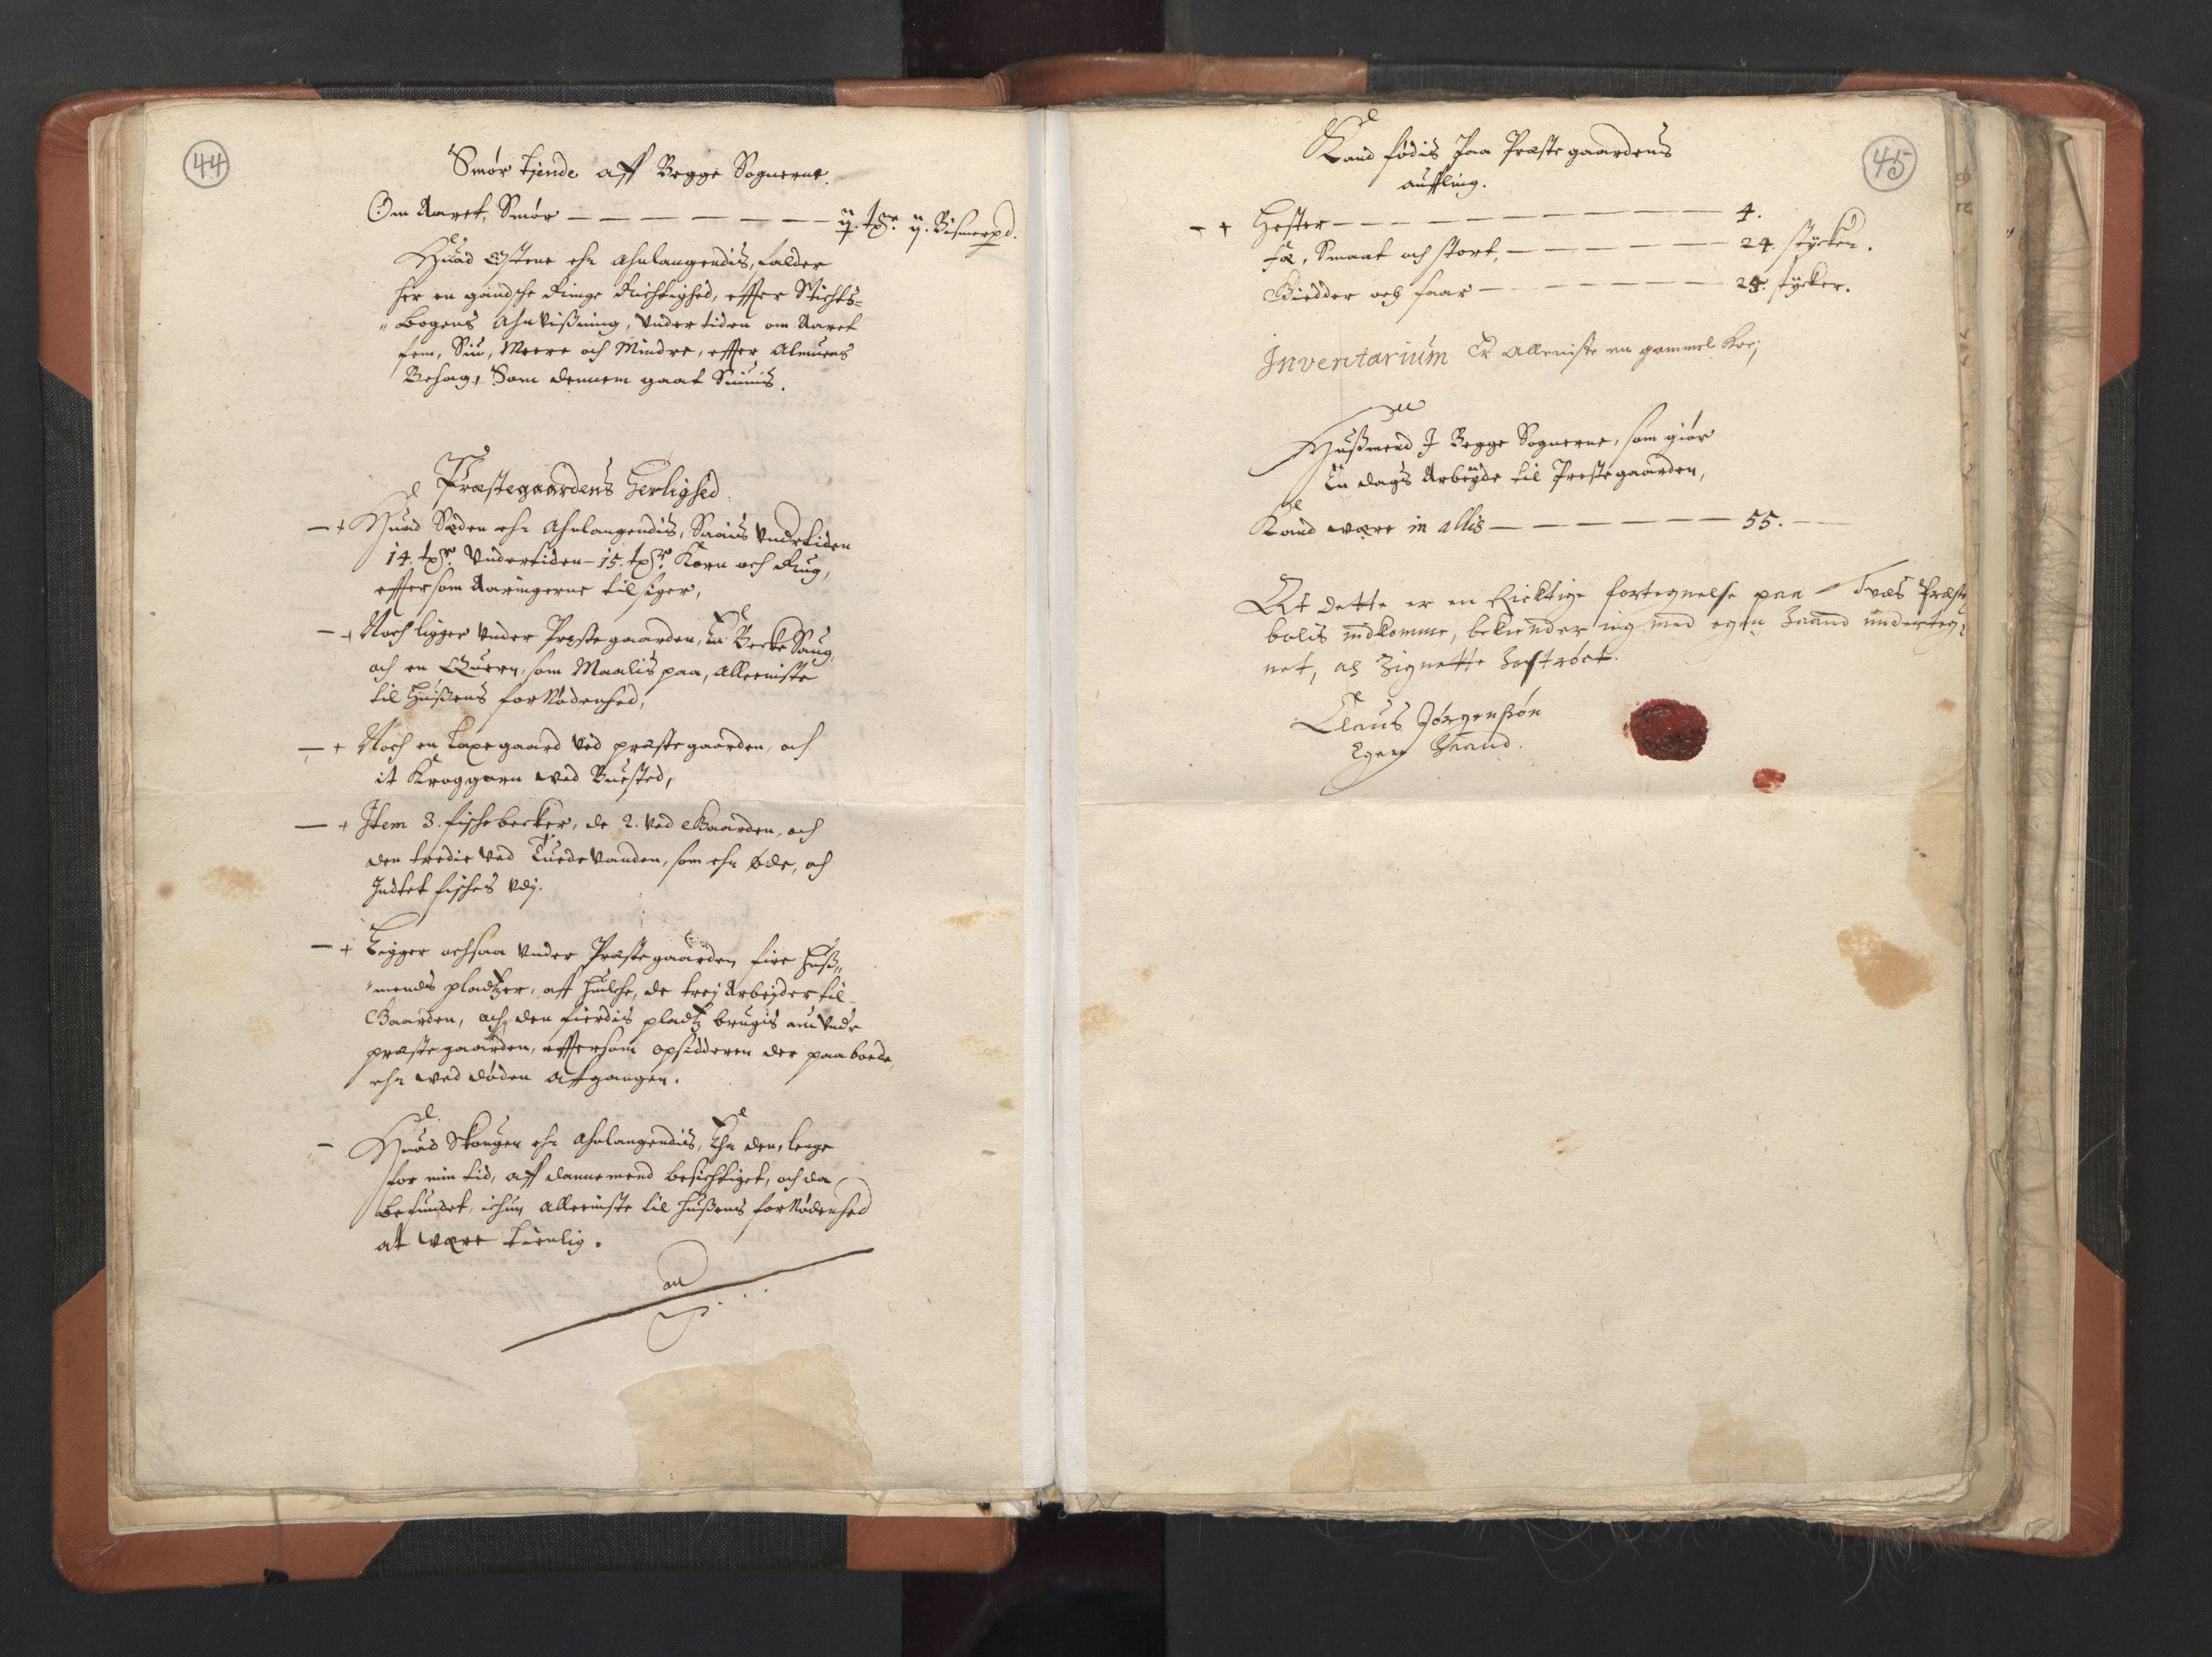 44
Smør tiende aff Begge Sognerne.
Om Aaret, Smør — — — — — — — ij. tdr. ij. Bismerpd.
Huad Ostene ehr Ahnlangendis, falder
her en gandsche Ringe Richtighed, effter Stichts=
"bogens Ahnvißning, Undertiden om Aaret
fem, Siu, Meere och Mindre, effter Almuens
Behag, Som dennem gaat Siunis.
Præstegaardens Herlighed.
— + Huad Sæden ehr Ahnlangendis, Saais Undertiden
14. tdr. Undertiden 15. tdr. Korn och Rug,
effter som Aaringerne tilsiger,
— + Noch ligger Under Præstegaarden, En Becke Saug,
och en Quern, som Maalis paa, Alleeniste
til Hußens forNødenhed,
— + Noch en Laxegaard Ved præstegaarden, och
it Kroggarn wed Buested,
— + Item 3. fischebecker, de 2. Ved Gaarden, och
den tredie Ved TuedeVanden, som ehr øde, och
Indtet fisches Udj.
— + Ligger ochsaa Under Præstegaarden fire Huß,,
"mends pladtzer, aff Huilche, de trej Arbejder til
Gaarden, och den fierdis pladtz brugis nu Under
præstegaarden, efftersom opsidderen der paa boede,
ehr wed døden affgangen.
— Huad Skougen ehr Ahnlangendis, Ehr den, lenge
for min tid, aff dannemend besichtiget, och da
befundet, ichun Alleeniste til Hußens forNødenhed
at være tienlig.
45
Kand fødis Paa Præstegaardens
auffling.
— + Hester — — — — — — — — 4.
Fæ, Smaat och stort, — — — — — 24. stycker.
Giedder och faar — — — — — — 25. stycker.
Inventarium Er Alleniste en gammel Koe,
Hußmend I Begge Sognerne, som giør
En dags Arbeyde til Prestegaarden,
Kand være in allis — — — — — — 55. —
At dette er en Ricktige fortegnelse paa Præste
bolis indkomme, bekiender ieg med egen Haand underteg,
net, oc Zignette Hostrøct.
Claus Jørgenßøn
Egen Haand.